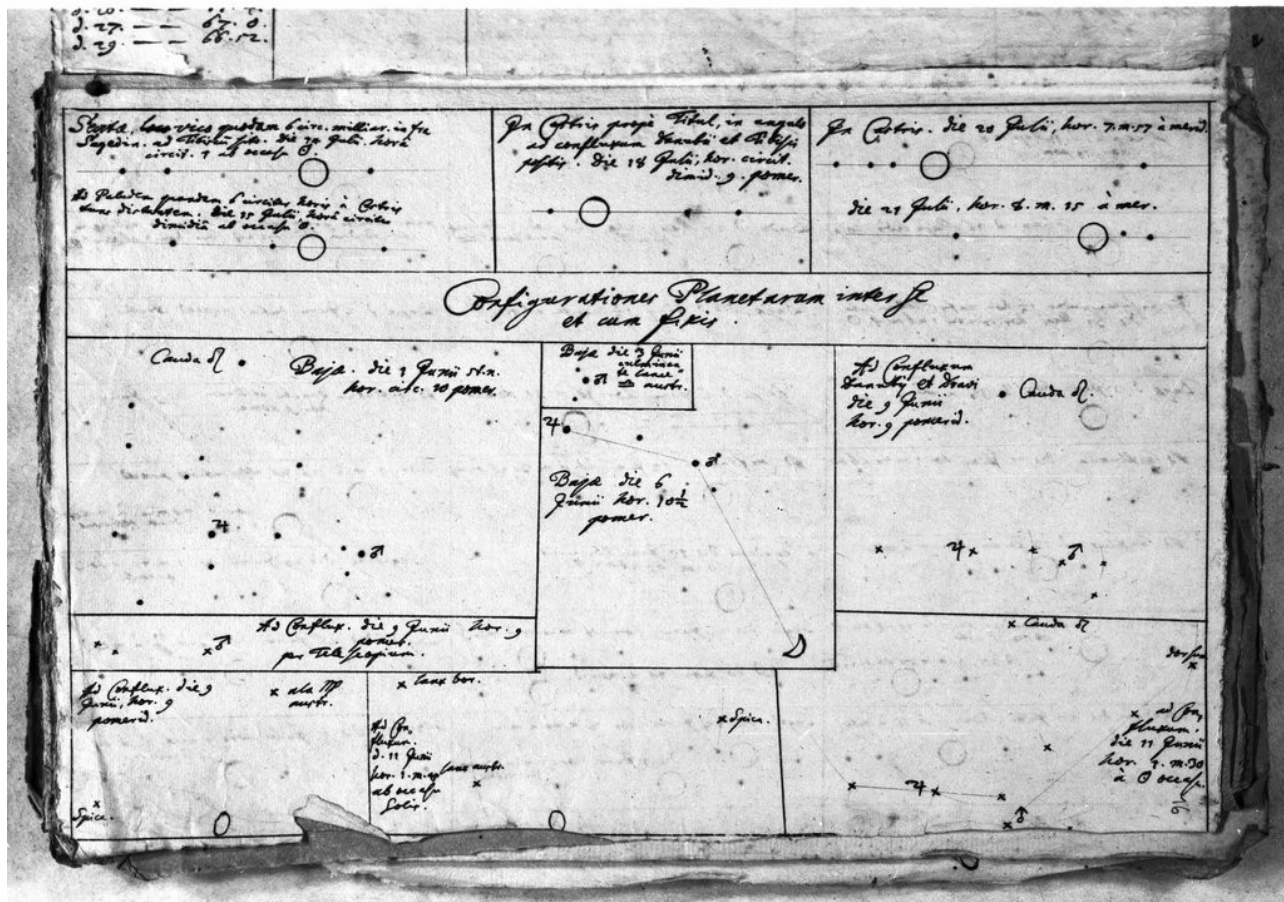 d. 27. — 67. 0.
d. 29 — 66. 52.
loco vico quodam 6 circ. milliar. infra
Segedin. ad Tibiscum sito. die Julii, horâ
circit. 1 ab occasu ☉.
Ad Paludem quandam 6 circiter horis à Castris
distantem. die 15 Julii, horâ circiter
dimidiâ ab occasu ☉.
In Castris propè Titul, in angulo
ad confluxum Danubii et Tibisci
positis. die 18 Julii, hor. circit.
dimid. 9. pomer.
In Castris. die 20 Julii, hor. 7. m. 17 à merid.
die 21 Julii, hor. 8. m. 15 à mer.
Configurationes Planetarum inter se
et cum fixis.
Cauda ♌
Bajæ. die 3 Junii st. n.
hor. circ. 10 pomer.
♃
♂
Bajæ die 3 Junii
♂
♎ austr.
♃
♂
Bajæ die 6
Junii hor. 10½
pomer.
Ad Confluxum
Danubij et Dravi
die 9 Junii
hor. 9 pomerid.
Cauda ♌.
♃
♂
Ad Conflux. die 9 Junii hor. 9
pomer.
per Telescopium.
♂
Ad Conflux. die 9
Junii, hor. 9
pomerid.
ala ♍
austr.
Spica.
lanx bor.
Ad Con,
fluxum.
d. 11 Junii
hor. 1. m.
ab occasu
Solis.
lanx austr.
Spica.
Cauda ♌
dorsum
ad Con,
fluxum.
die 11 Junii
hor. 1. m. 30
à ☉ occasu.
♃
♂